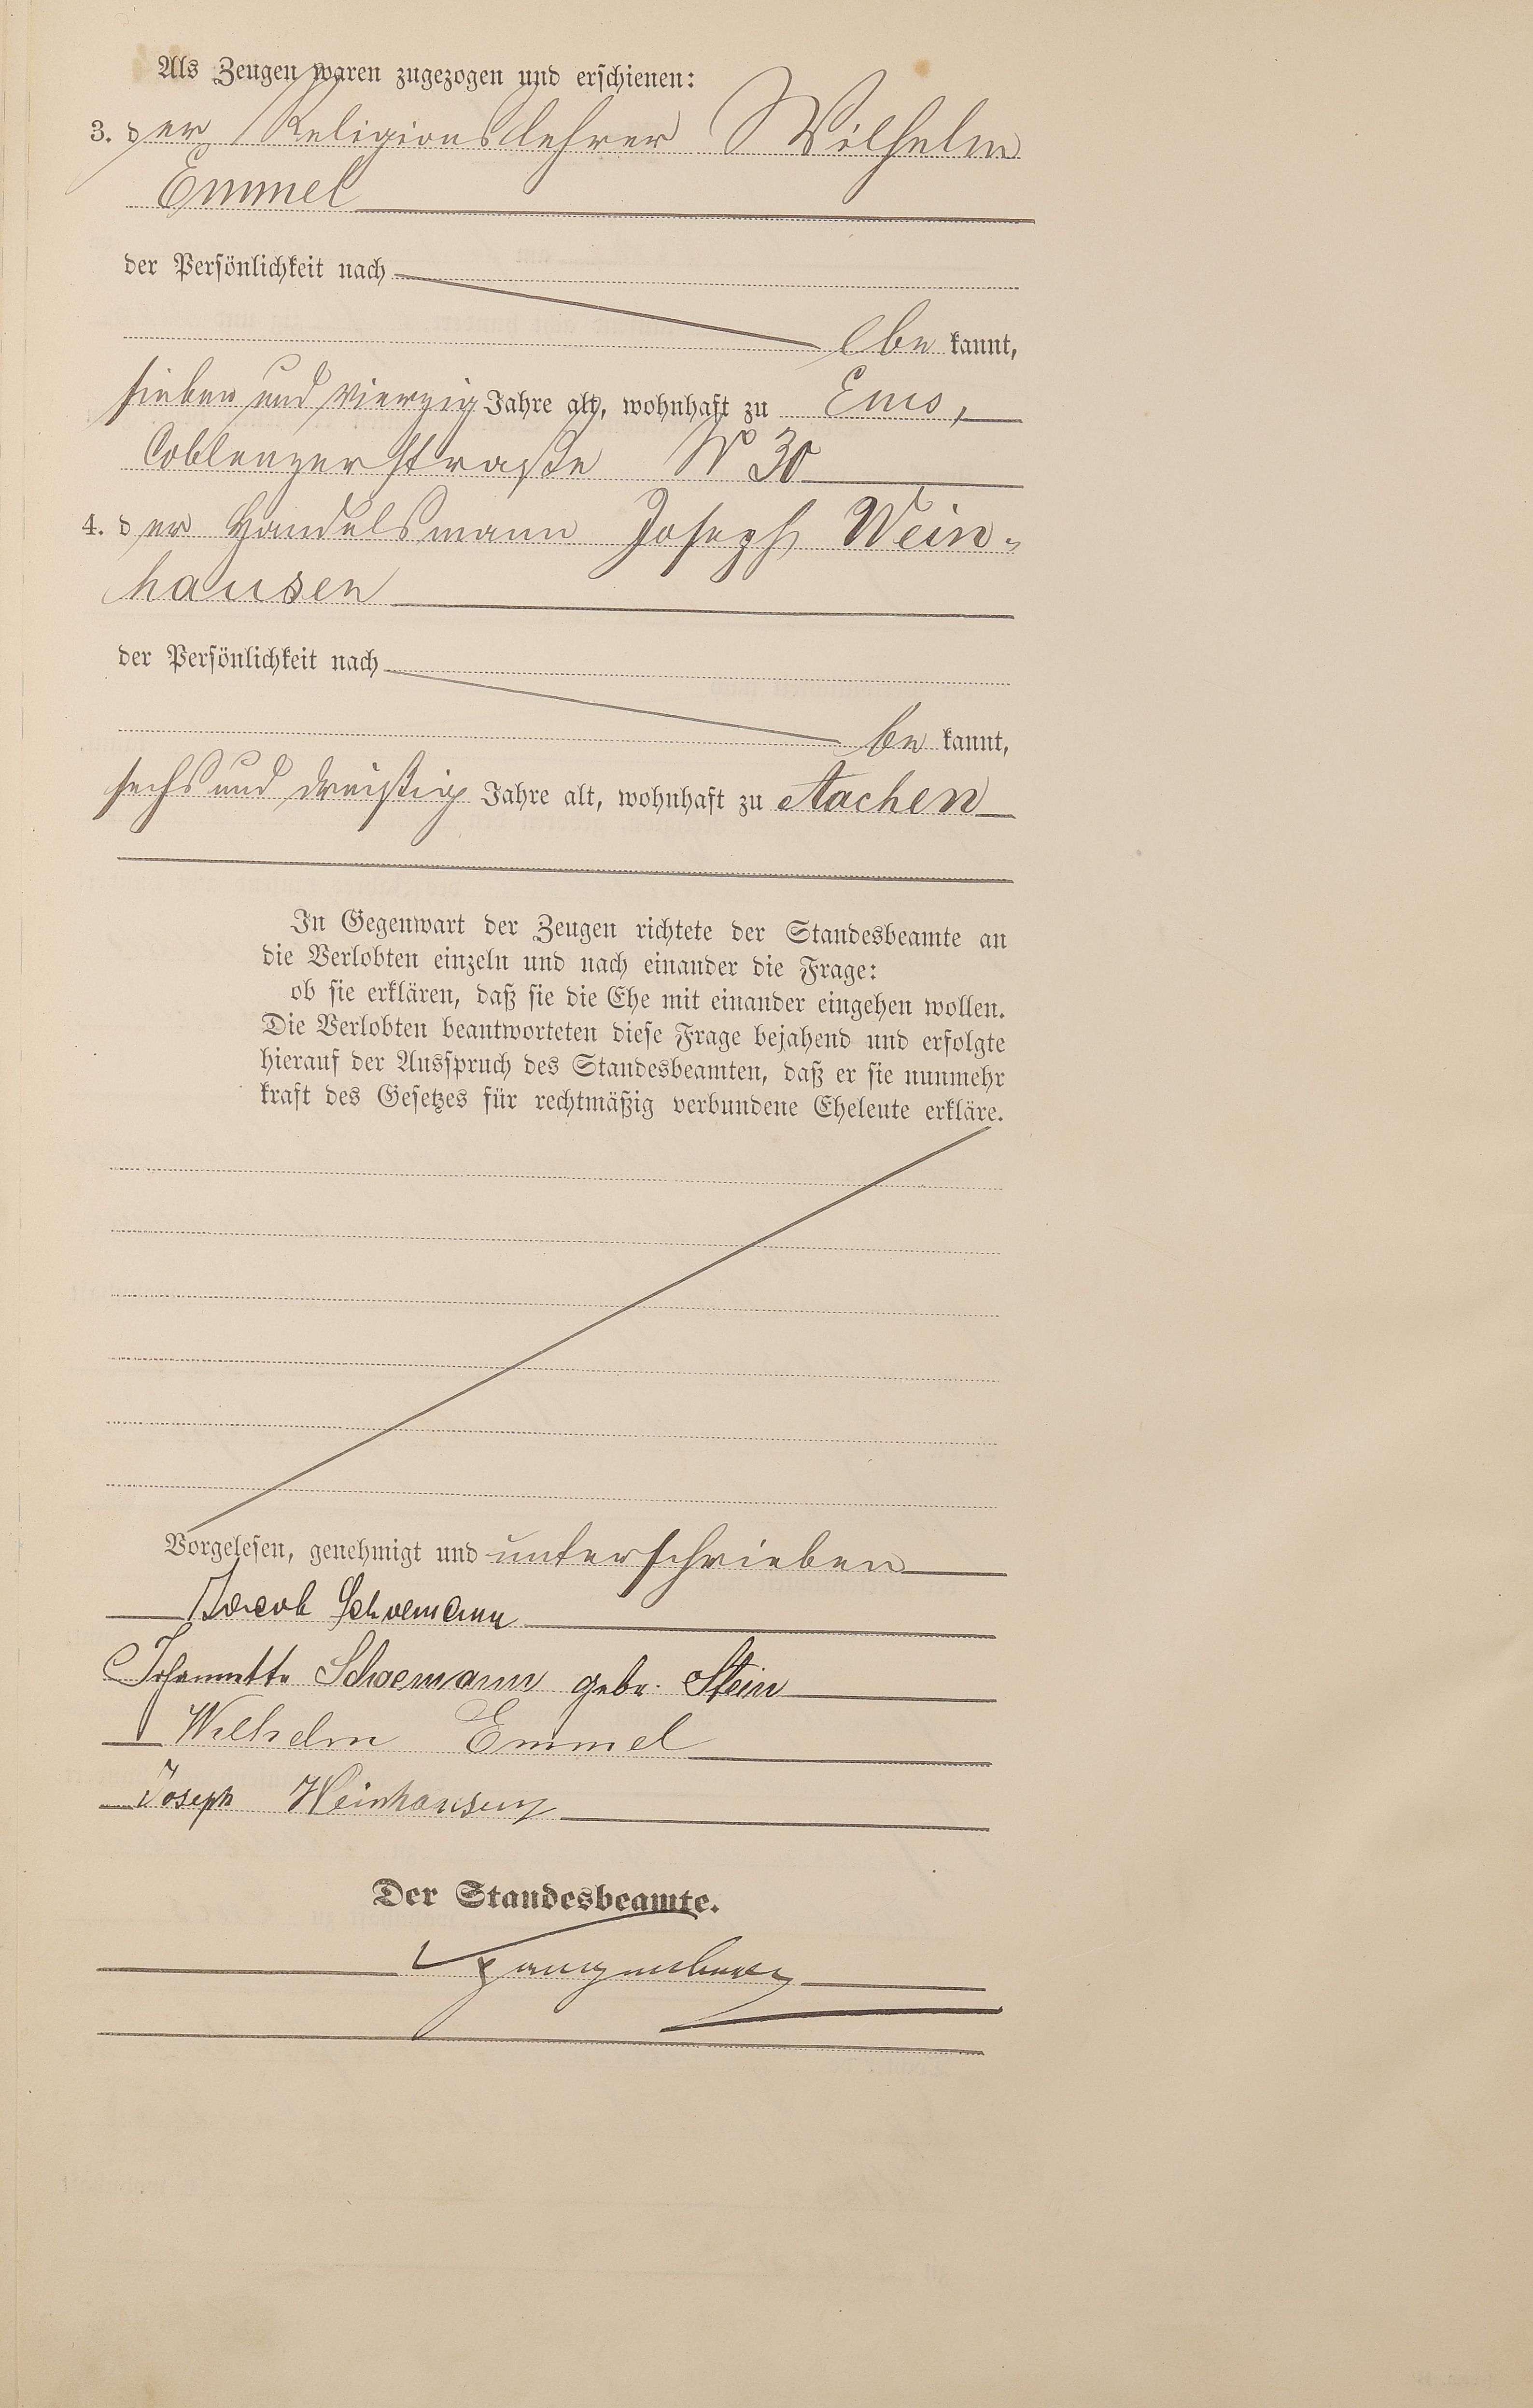 Als Zeugen waren zugezogen und erschienen:
3. der Religionslehrer Wilhelm
Emmel
der Persönlichkeit nach
be kannt,
sieben und vierzig Jahre alt, wohnhaft zu Ems,
Coblenzerstraße No 30
4. der Handelsmann Joseph Wein-
hausen
der Persönlichkeit nach
be kannt,
sechs und dreißig Jahre alt, wohnhaft zu Aachen
In Gegenwart der Zeugen richtete der Standesbeamte an
die Verlobten einzeln und nach einander die Frage:
ob sie erklären, daß sie die Ehe mit einander eingehen wollen.
Die Verlobten beantworteten diese Frage bejahend und erfolgte
hierauf der Ausspruch des Standesbeamten, daß er sie nunmehr
kraft des Gesetzes für rechtmäßig verbundene Eheleute erkläre.
Vorgelesen, genehmigt und unterschrieben
Jacob Schoemann
Johannette Schoemann gebr. Stein
Wilhelm Emmel
Joseph Weinhausen
Der Standesbeamte.